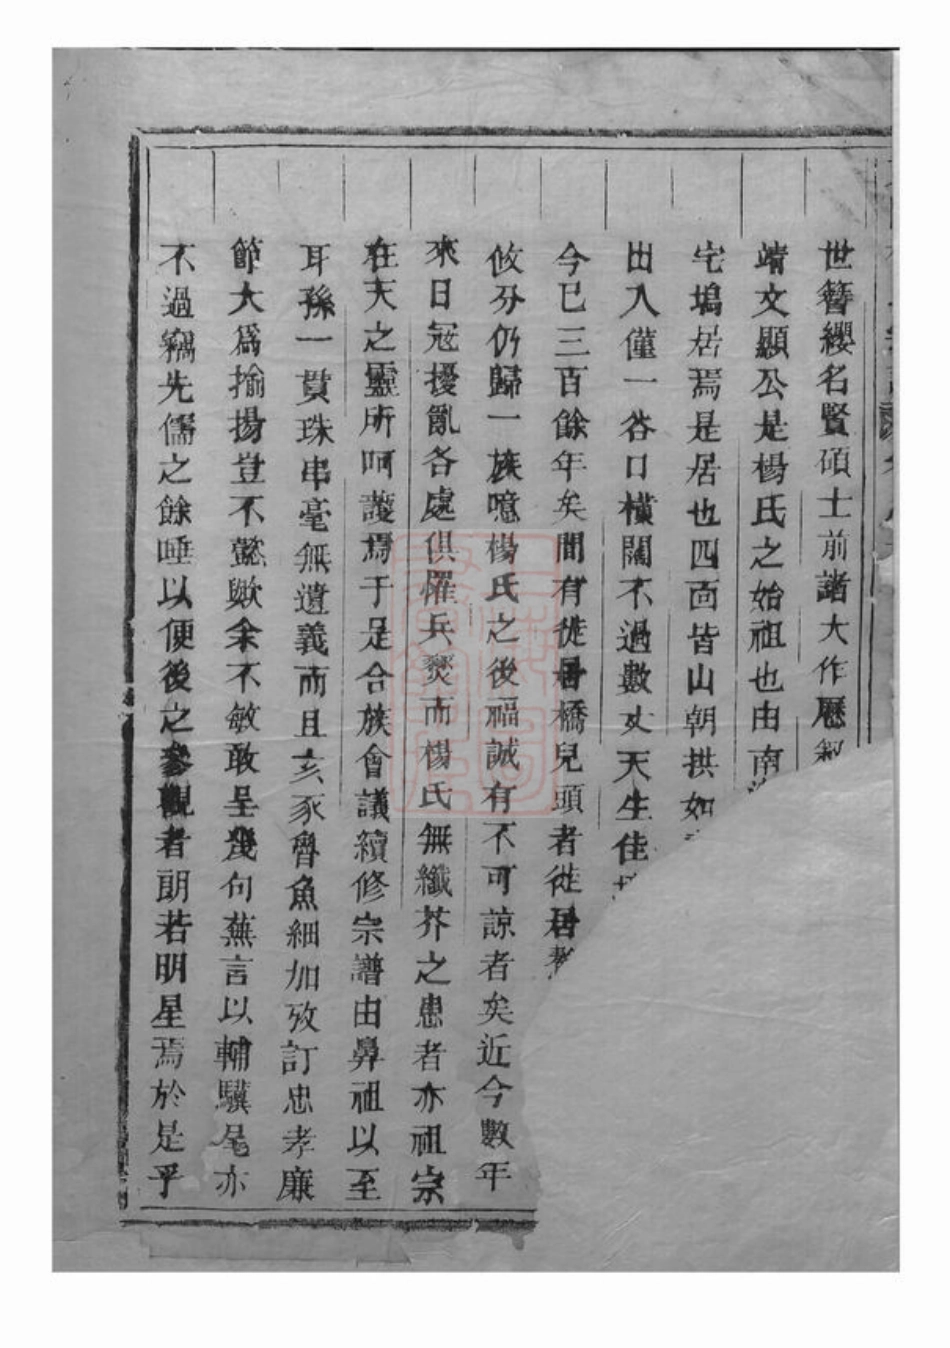 世簪纓名賢碩士前諸大作歷敍
靖文顯公是楊氏之始祖也由南
宅塢居焉是居也四面皆山朝拱如
出入僅一谷口橫闊不過數丈天生佳
今已三百餘年矣間有徙居橋兒頭者徙居
攸分仍歸一族噫楊氏之後福誠有不可諒者矣近今數年
來日冦擾亂各處俱罹兵燹而楊氏無纖芥之患者亦祖宗
在天之靈所呵護焉于是合族會議續修宗譜由鼻祖以至
耳孫一貫珠串毫無遺義而且亥豕魯魚細加攷訂忠孝廉
節大爲揄揚豈不懿歟余不敏敢呈幾句蕪言以輔驥尾亦
不過竊先儒之餘唾以便後之參觀者朗若明星焉於是乎